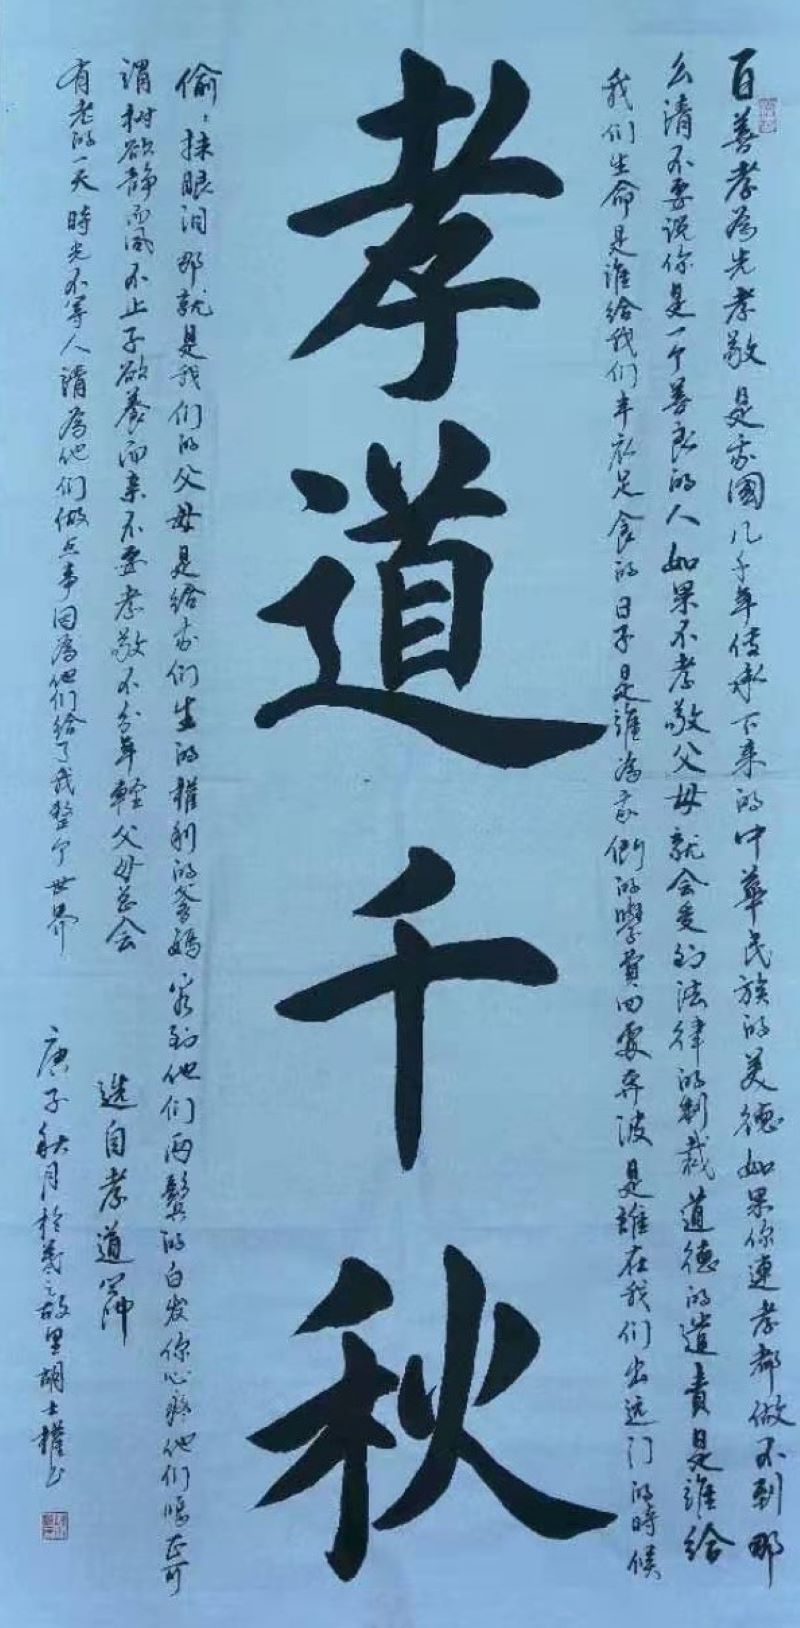 百善孝為先孝敬是我國几千年传承下来的中華民族的美德如果你連孝都做不到那
么请不要说你是一个善良的人如果不孝敬父母就会受到法律的制裁道德的遣责是誰给
我们生命是誰给我们丰衣足食的日子是誰為我们的學費四處奔波是誰在我们出远门的時候
孝道千秋
偷偷抹眼泪那就是我们的父母是给我们生的權利的爹媽看到他们两鬓的白发你心疼他们嗎正所
謂树欲静而風不止子欲養而亲不待孝敬不分年輕父母总会
有老的一天時光不等人請為他们做点事因為他们给了我整个世界
選自孝道篇
庚子秋月於羲之故里胡士權書